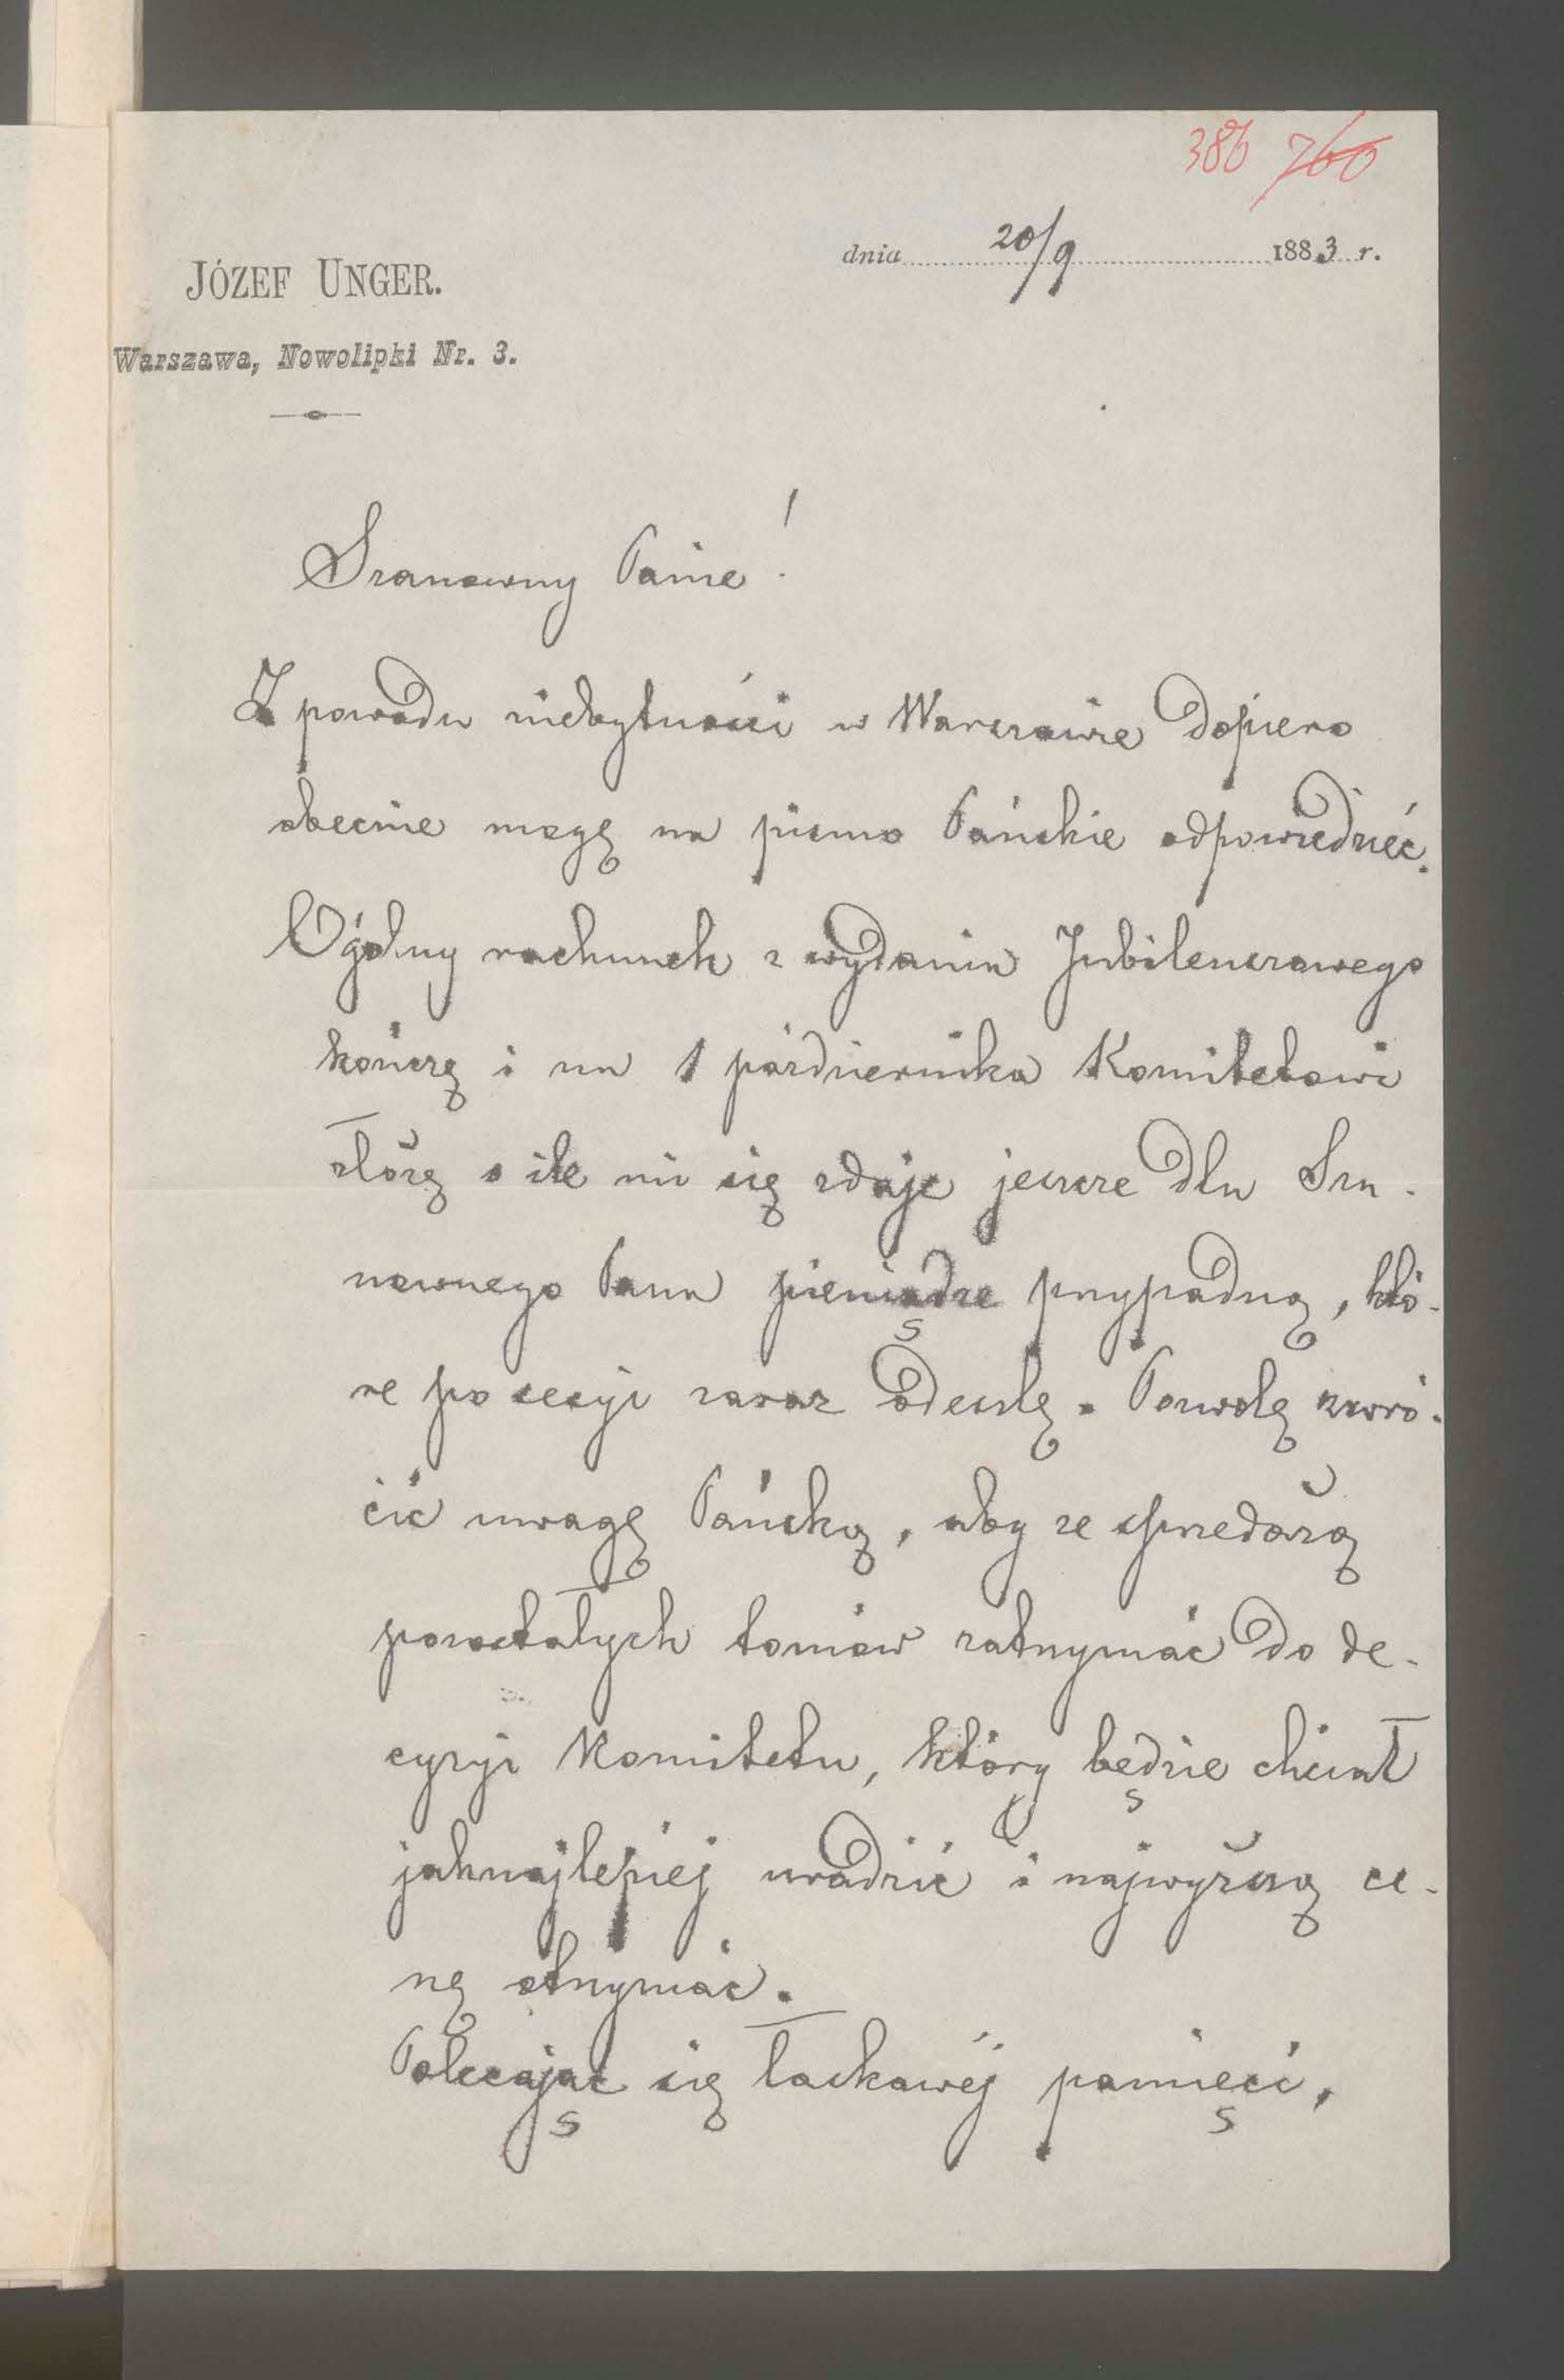 386 760
dnia 20/9 1883 r.
JÓZEF UNGER.
Warszawa, Nowolipki Nr. 3.
Szanowny Panie!
Z powodu niebytności w Warszawie dopiero
obecnie mogę na pismo Pańskie odpowiedzieć.
Ogólny rachunek z wydania Jubileuszowego
kończę i na 1 października Komitetowi
złożę o ile mi się zdaje jeszcze dla Sza-
nownego Pana pieniądze przypadną, któ-
re po sesyi zaraz odeszlę. Pozwolę zwró-
cić uwagę Pańską, aby ze sprzedażą
pozostałych tomów zatrzymać do de-
cyzyi Komitetu, który będzie chciał
jaknajlepiej uradzić i najwyższą ce-
nę otrzymać.
Polecając się łaskawéj pamięci,